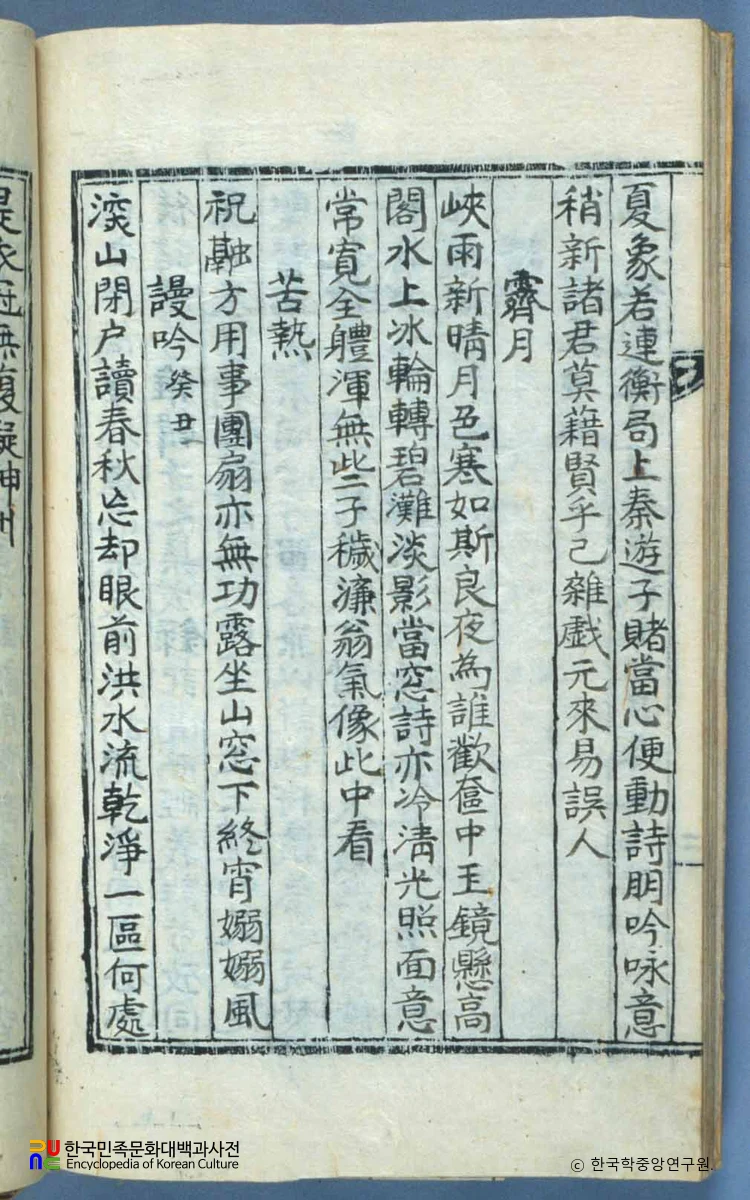 夏象若連衡局上秦遊子賭當心便動詩朋吟咏意
稍新諸君莫藉賢乎己雜戲元來易誤人
霽月
峽雨新晴月色寒如斯良夜為誰歡奩中玉鏡懸高
閣水上氷輪轉碧灘淡影當窓詩亦冷淸光照面意
常寬全軆渾無此二子穢濂翁氣像此中看
苦熱
祝融方用事團扇亦無功露坐山窓下終宵嫋嫋風
謾吟 癸丑
深山閉户讀春秋忘却眼前洪水流乾淨一區何處
是衣冠無復疑神州
한국민족문화대백과사전
Encyclopedia of Korean Culture
ⓒ 한국학중앙연구원.